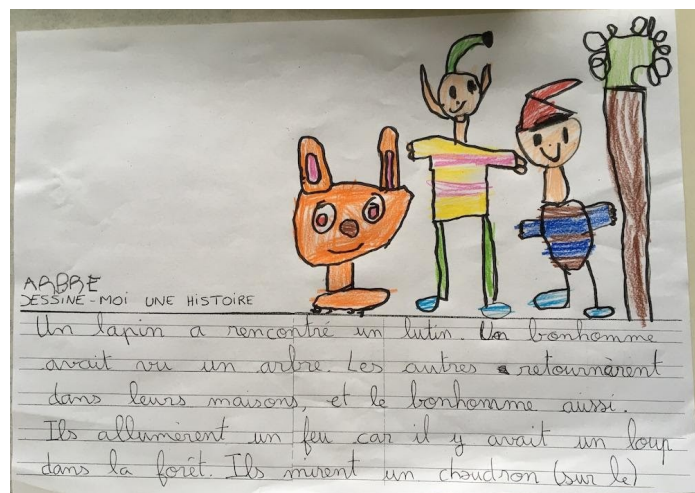 ARBRE
DESSINE-MOI UNE HISTOIRE
Un lapin a rencontré un lutin. Un bonhomme
avait vu un arbre. Les autres retournèrent
dans leurs maisons, et le bonhomme aussi.
Ils allumèrent un feu car il y avait un loup
dans la forêt. Ils mirent un chaudron (sur le)